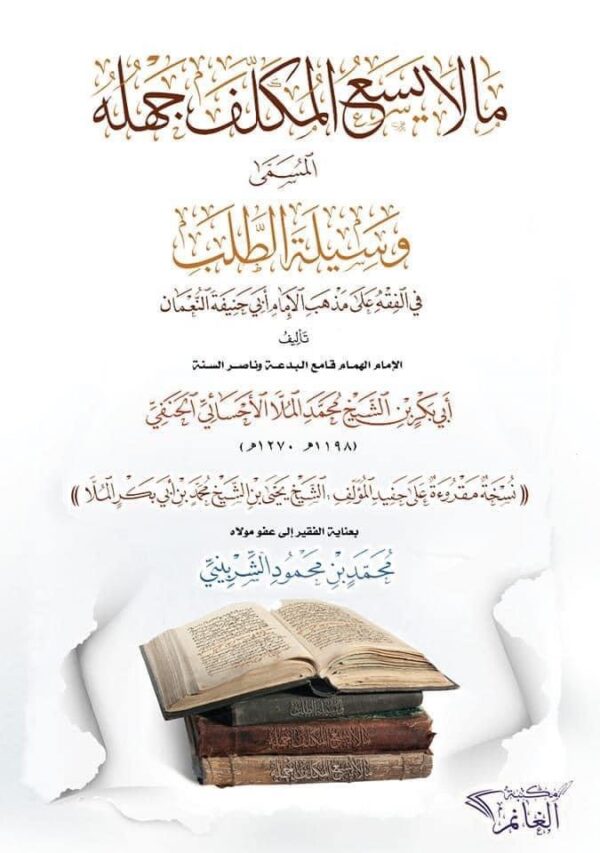 ما لا يسع المكلف جهله
المسمى
وسيلة الطلب
في الفقه على مذهب الإمام أبي حنيفة النعمان
تأليف
الإمام الهمام قامع البدعة وناصر السنة
أبي بكر بن الشيخ محمد الملا الأحسائي الحنفي
(١١٩٨هـ ١٢٧٠هـ)
(( نسخة مقروءة على حفيد المؤلف، الشيخ يحيى بن الشيخ محمد بن أبي بكر الملا ))
بعناية الفقير إلى عفو مولاه
محمد بن محمود الشربيني
وسيلة الطلب
ما لا يسع المكلف جهله
ما لا يسع المكلف جهله
مكتبة
الغانم